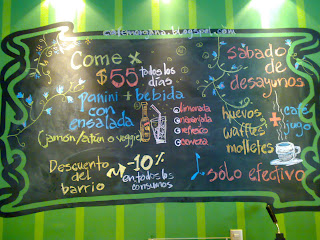 cafe-morgana.blogspot.com
Come x
$55 todos los días
panini + bebida
con
ensalada
jamón/atún o veggie
limonada
naranjada
refresco
cerveza
Descuento del
barrio
-10%
en todos los
consumos
Sábado de
desayunos
huevos
waffles
molletes
+
café
jugo
sólo efectivo